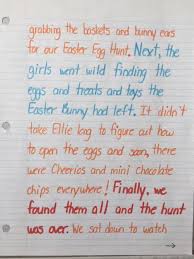 grabbing the baskets and bunny ears
for our Easter Egg Hunt. Next, the
girls went wild finding the
eggs and treats and toys the
Easter Bunny had left. It didn't
take Ellie log to figure out how
to open the eggs and soon, there
were Cheerios and mini chocolate
chips everywhere! Finally, we
found them all and the hunt
was over. We sat down to watch
→